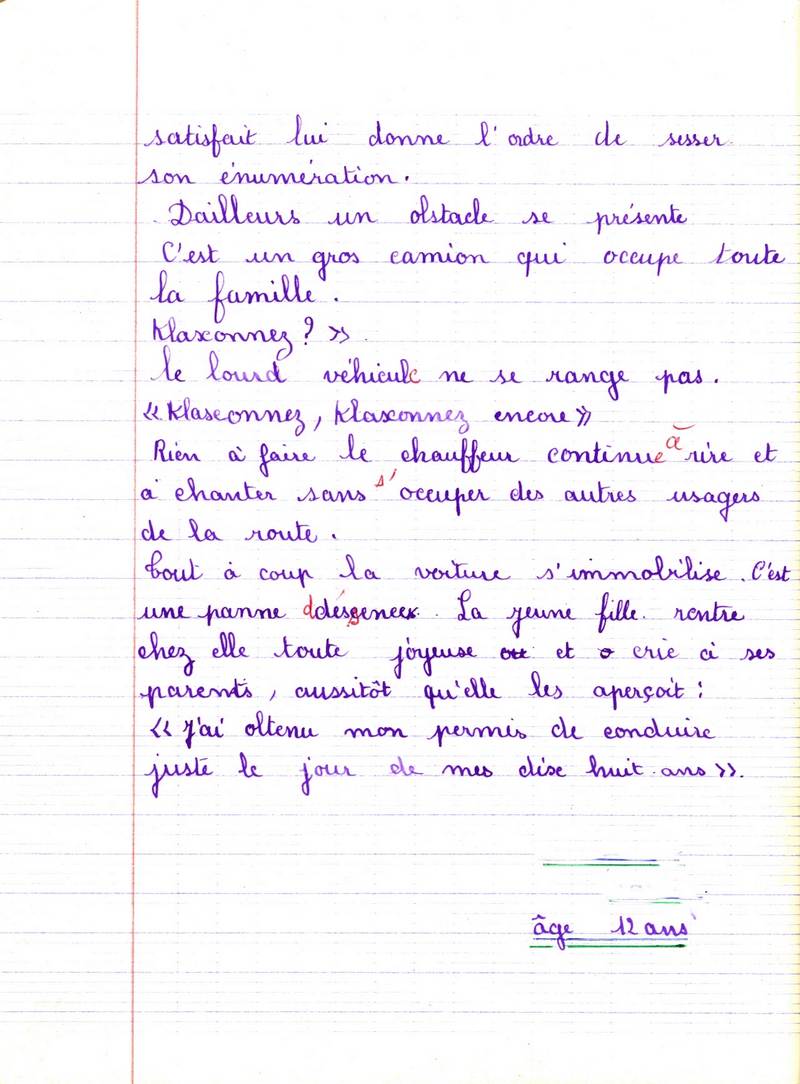 satisfait lui donne l'ordre de sesser
son énumération.
Dailleurs un olstacle se présente
C'est un gros camion qui occupe toute
la famille.
Klaxonnez ? »
le lourd véhicule ne se range pas.
« Klaxonnez, Klaxonnez encore »
Rien à faire le chauffeur continue à rire et
à chanter sans s'occuper des autres usagers
de la route.
Tout à coup la voiture s'immobilise. C'est
une panne La jeune fille rentre
chez elle toute joyeuse et crie à ses
parents, aussitôt qu'elle les aperçoit :
« J'ai oltenu mon permis de conduire
juste le jour de mes dixe huit ans ».
âge 12 ans